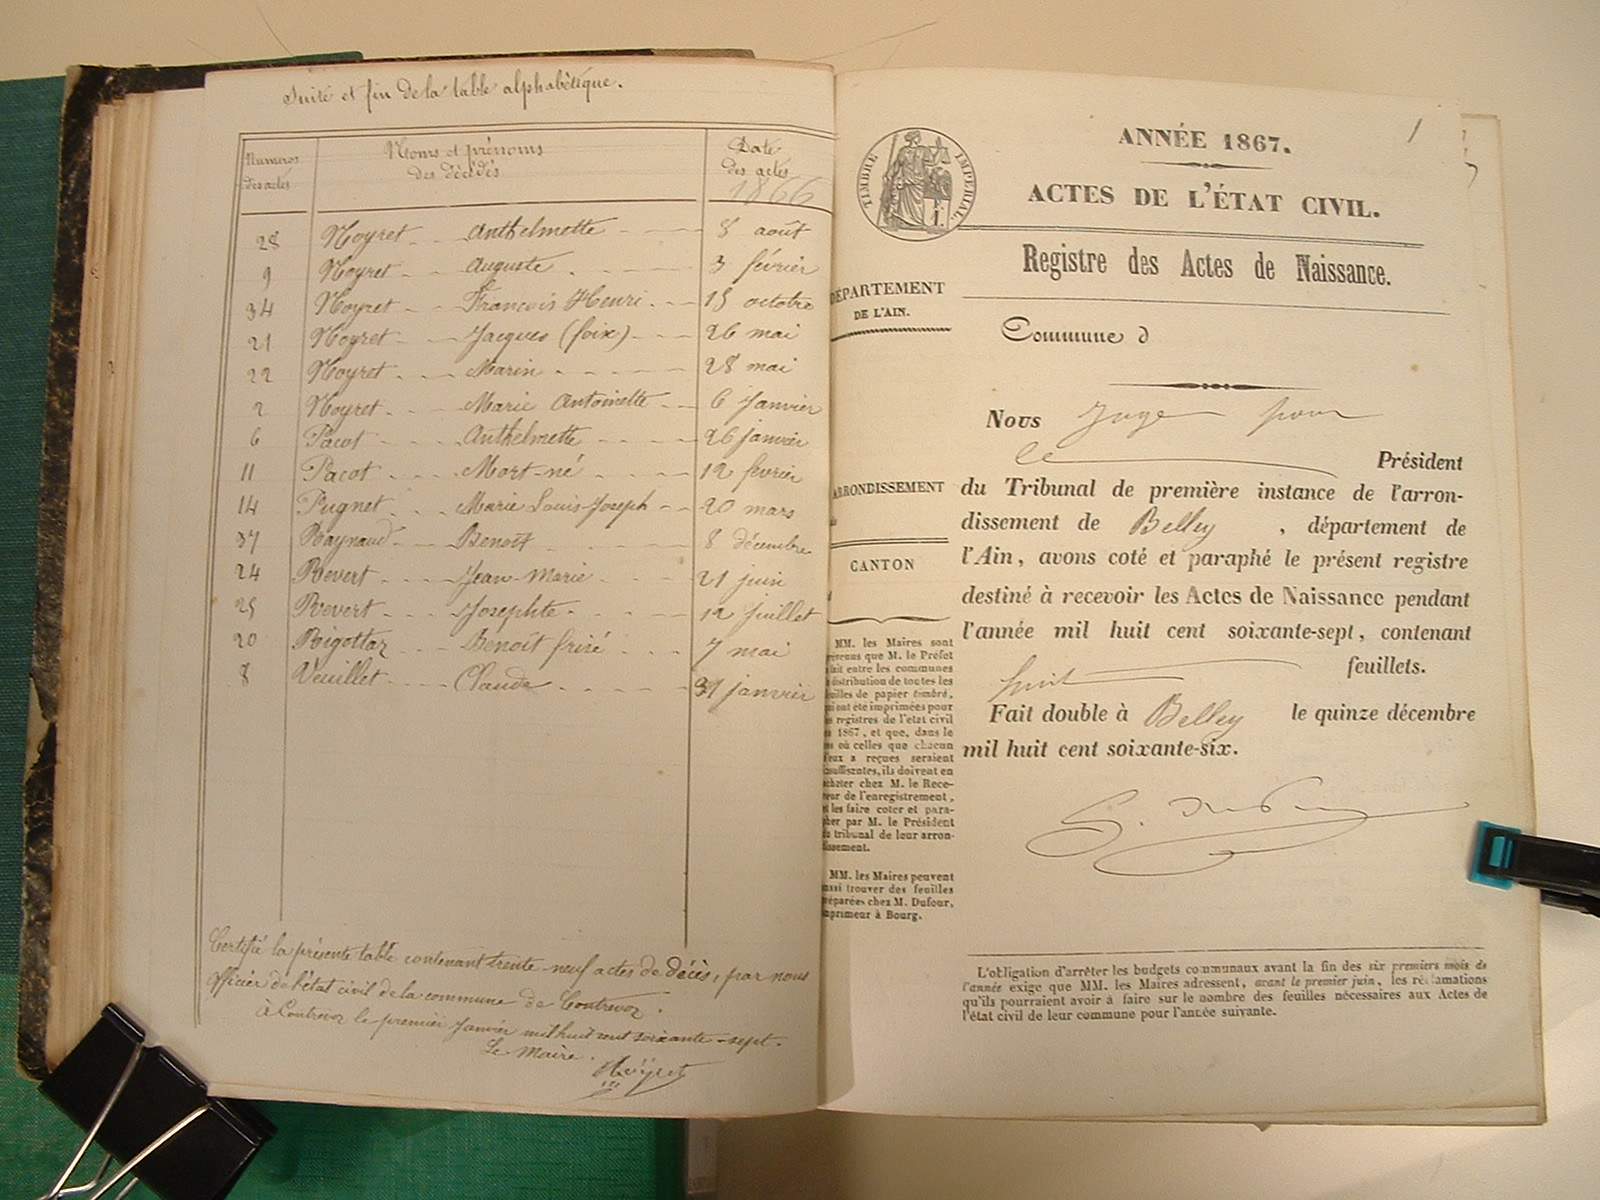 Suite et fin de la table alphabétique.
Numéros des actes
Noms et prénoms des décédés
Date des actes
1866
28 Noyret Anthelmette 8 août
9 Noyret Auguste 3 février
34 Noyret François Henri 15 octobre
21 Noyret Jacques (foix) 26 mai
22 Noyret Marin 28 mai
2 Noyret Marie Antoinette 6 janvier
6 Pacot Anthelmette 26 janvier
11 Pacot Mort-né 12 février
14 Pugnet Marie Louis Joseph 20 mars
37 Raynaud Benoît 8 décembre
24 Revert Jean-Marie 21 juin
25 Revert Josephte 12 juillet
20 Rigottaz Benoît frisé 7 mai
8 Veuillet Claude 31 janvier
Certifié la présente table contenant trente-neuf actes de décès, par nous
officier de l'état civil de la commune de Contrevoz.
à Contrevoz le premier Janvier mil huit cent soixante-sept.
Le Maire.
Noÿret
1
ANNÉE 1867.
TIMBRE IMPÉRIAL.
ACTES DE L'ÉTAT CIVIL.
Registre des Actes de Naissance.
DÉPARTEMENT
DE L'AIN.
Commune d
Nous Juge pour
le Président
du Tribunal de première instance de l'arron-
dissement de Belley, département de
l'Ain, avons coté et paraphé le présent registre
destiné à recevoir les Actes de Naissance pendant
l'année mil huit cent soixante-sept, contenant
huit feuillets.
Fait double à Belley le quinze décembre
mil huit cent soixante-six.
ARRONDISSEMENT
CANTON
MM. les Maires sont
prévenus que M. le Préfet
a fait entre les communes
la distribution de toutes les
feuilles de papier timbré,
qui ont été imprimées pour
les registres de l'état civil
de 1867, et que, dans le
cas où celles que chacun
d'eux a reçues seraient
insuffisantes, ils doivent en
acheter chez M. le Rece-
veur de l'enregistrement,
et les faire coter et para-
pher par M. le Président
du tribunal de leur arron-
dissement.
MM. les Maires peuvent
aussi trouver des feuilles
préparées chez M. Dufour,
imprimeur à Bourg.
L'obligation d'arrêter les budgets communaux avant la fin des six premiers mois de
l'année exige que MM. les Maires adressent, avant le premier juin, les réclamations
qu'ils pourraient avoir à faire sur le nombre des feuilles nécessaires aux Actes de
l'état civil de leur commune pour l'année suivante.